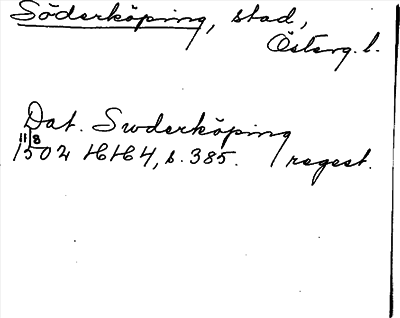 Söderköping, stad,
Österg. l.
Dat. Swderköping
11/8
1502 HH4, s. 385. / regest.